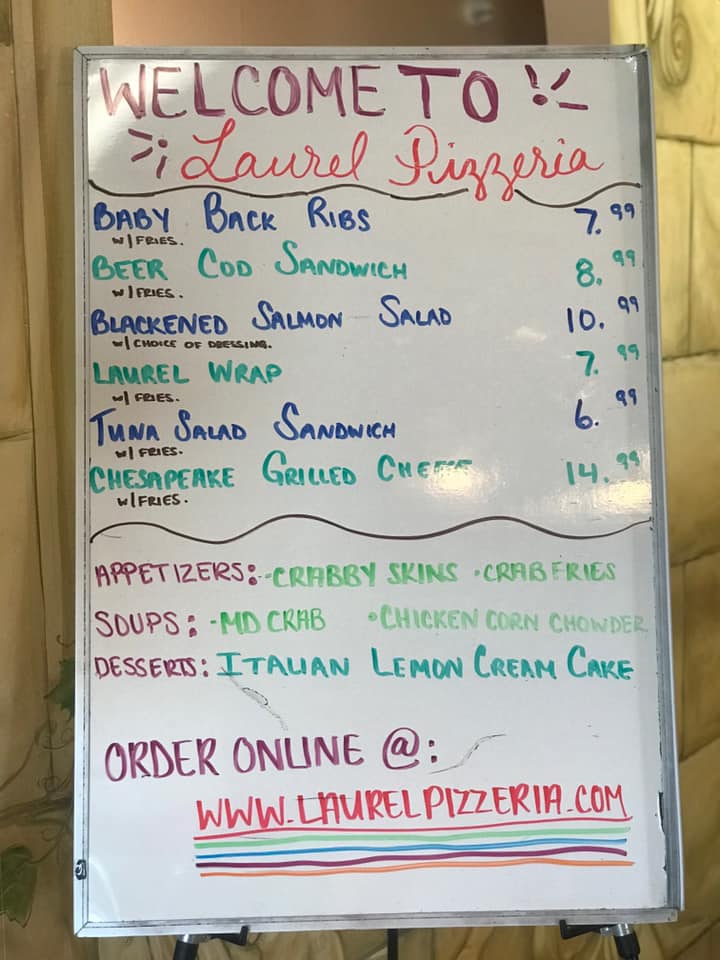 WELCOME TO !
Laurel Pizzeria
BABY BACK RIBS 7.99
W/FRIES.
BEER COD SANDWICH 8.99
W/FRIES.
BLACKENED SALMON SALAD 10.99
W/CHOICE OF DRESSING.
LAUREL WRAP 7.99
W/FRIES.
TUNA SALAD SANDWICH 6.99
W/FRIES.
CHESAPEAKE GRILLED CHEESE 14.99
W/FRIES.
APPETIZERS: •CRABBY SKINS •CRAB FRIES
SOUPS: •MD CRAB •CHICKEN CORN CHOWDER
DESSERTS: ITALIAN LEMON CREAM CAKE
ORDER ONLINE @:
WWW.LAURELPIZZERIA.COM